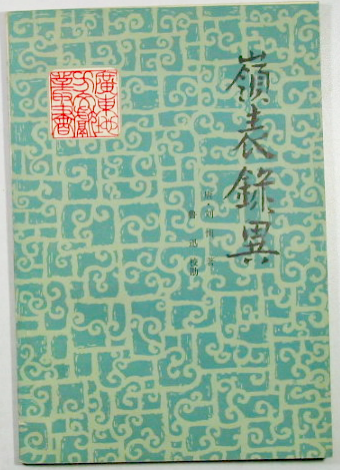 嶺表錄異
唐 劉恂 著
魯迅 校勘
廣東地
方文獻
叢書